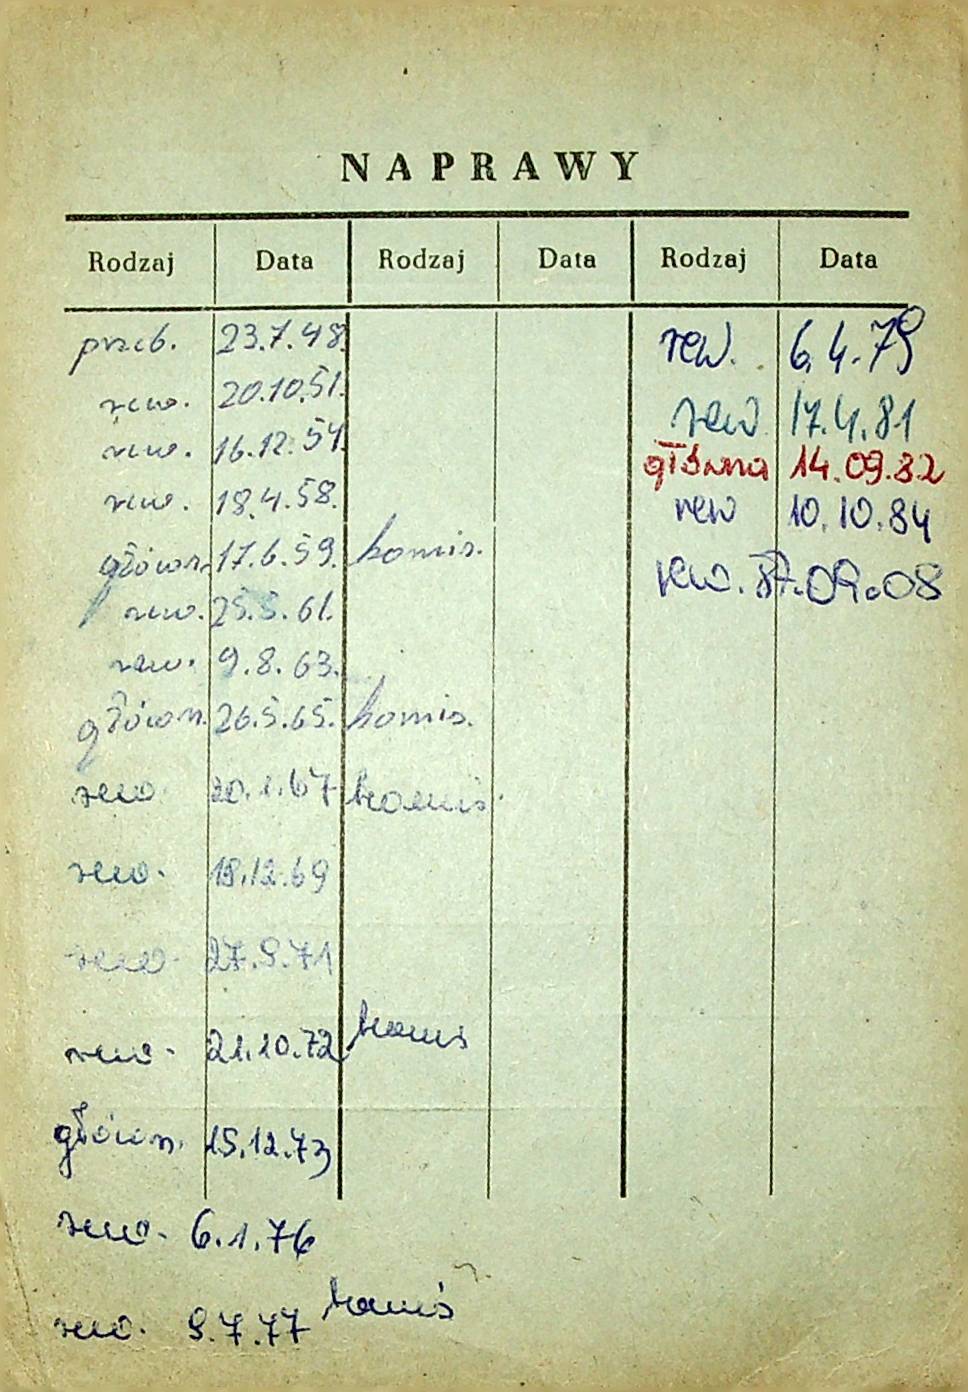 NAPRAWY
Rodzaj Data Rodzaj Data Rodzaj Data
przeb. 23.7.48.
rew. 20.10.51.
rew. 16.12.54.
rew. 18.4.58.
główn. 17.6.59. komis.
rew. 25.5.61.
rew. 9.8.63.
główn. 26.5.65. komis.
rew. 20.1.67 komis.
rew. 18.12.69
rew. 27.9.71
rew. 21.10.72 komis
główn. 15.12.73
rew. 6.1.76
rew. 9.7.77 komis
rew. 6.4.79
rew 17.4.81
główna 14.09.82
rew 10.10.84
rew. 87.09.08